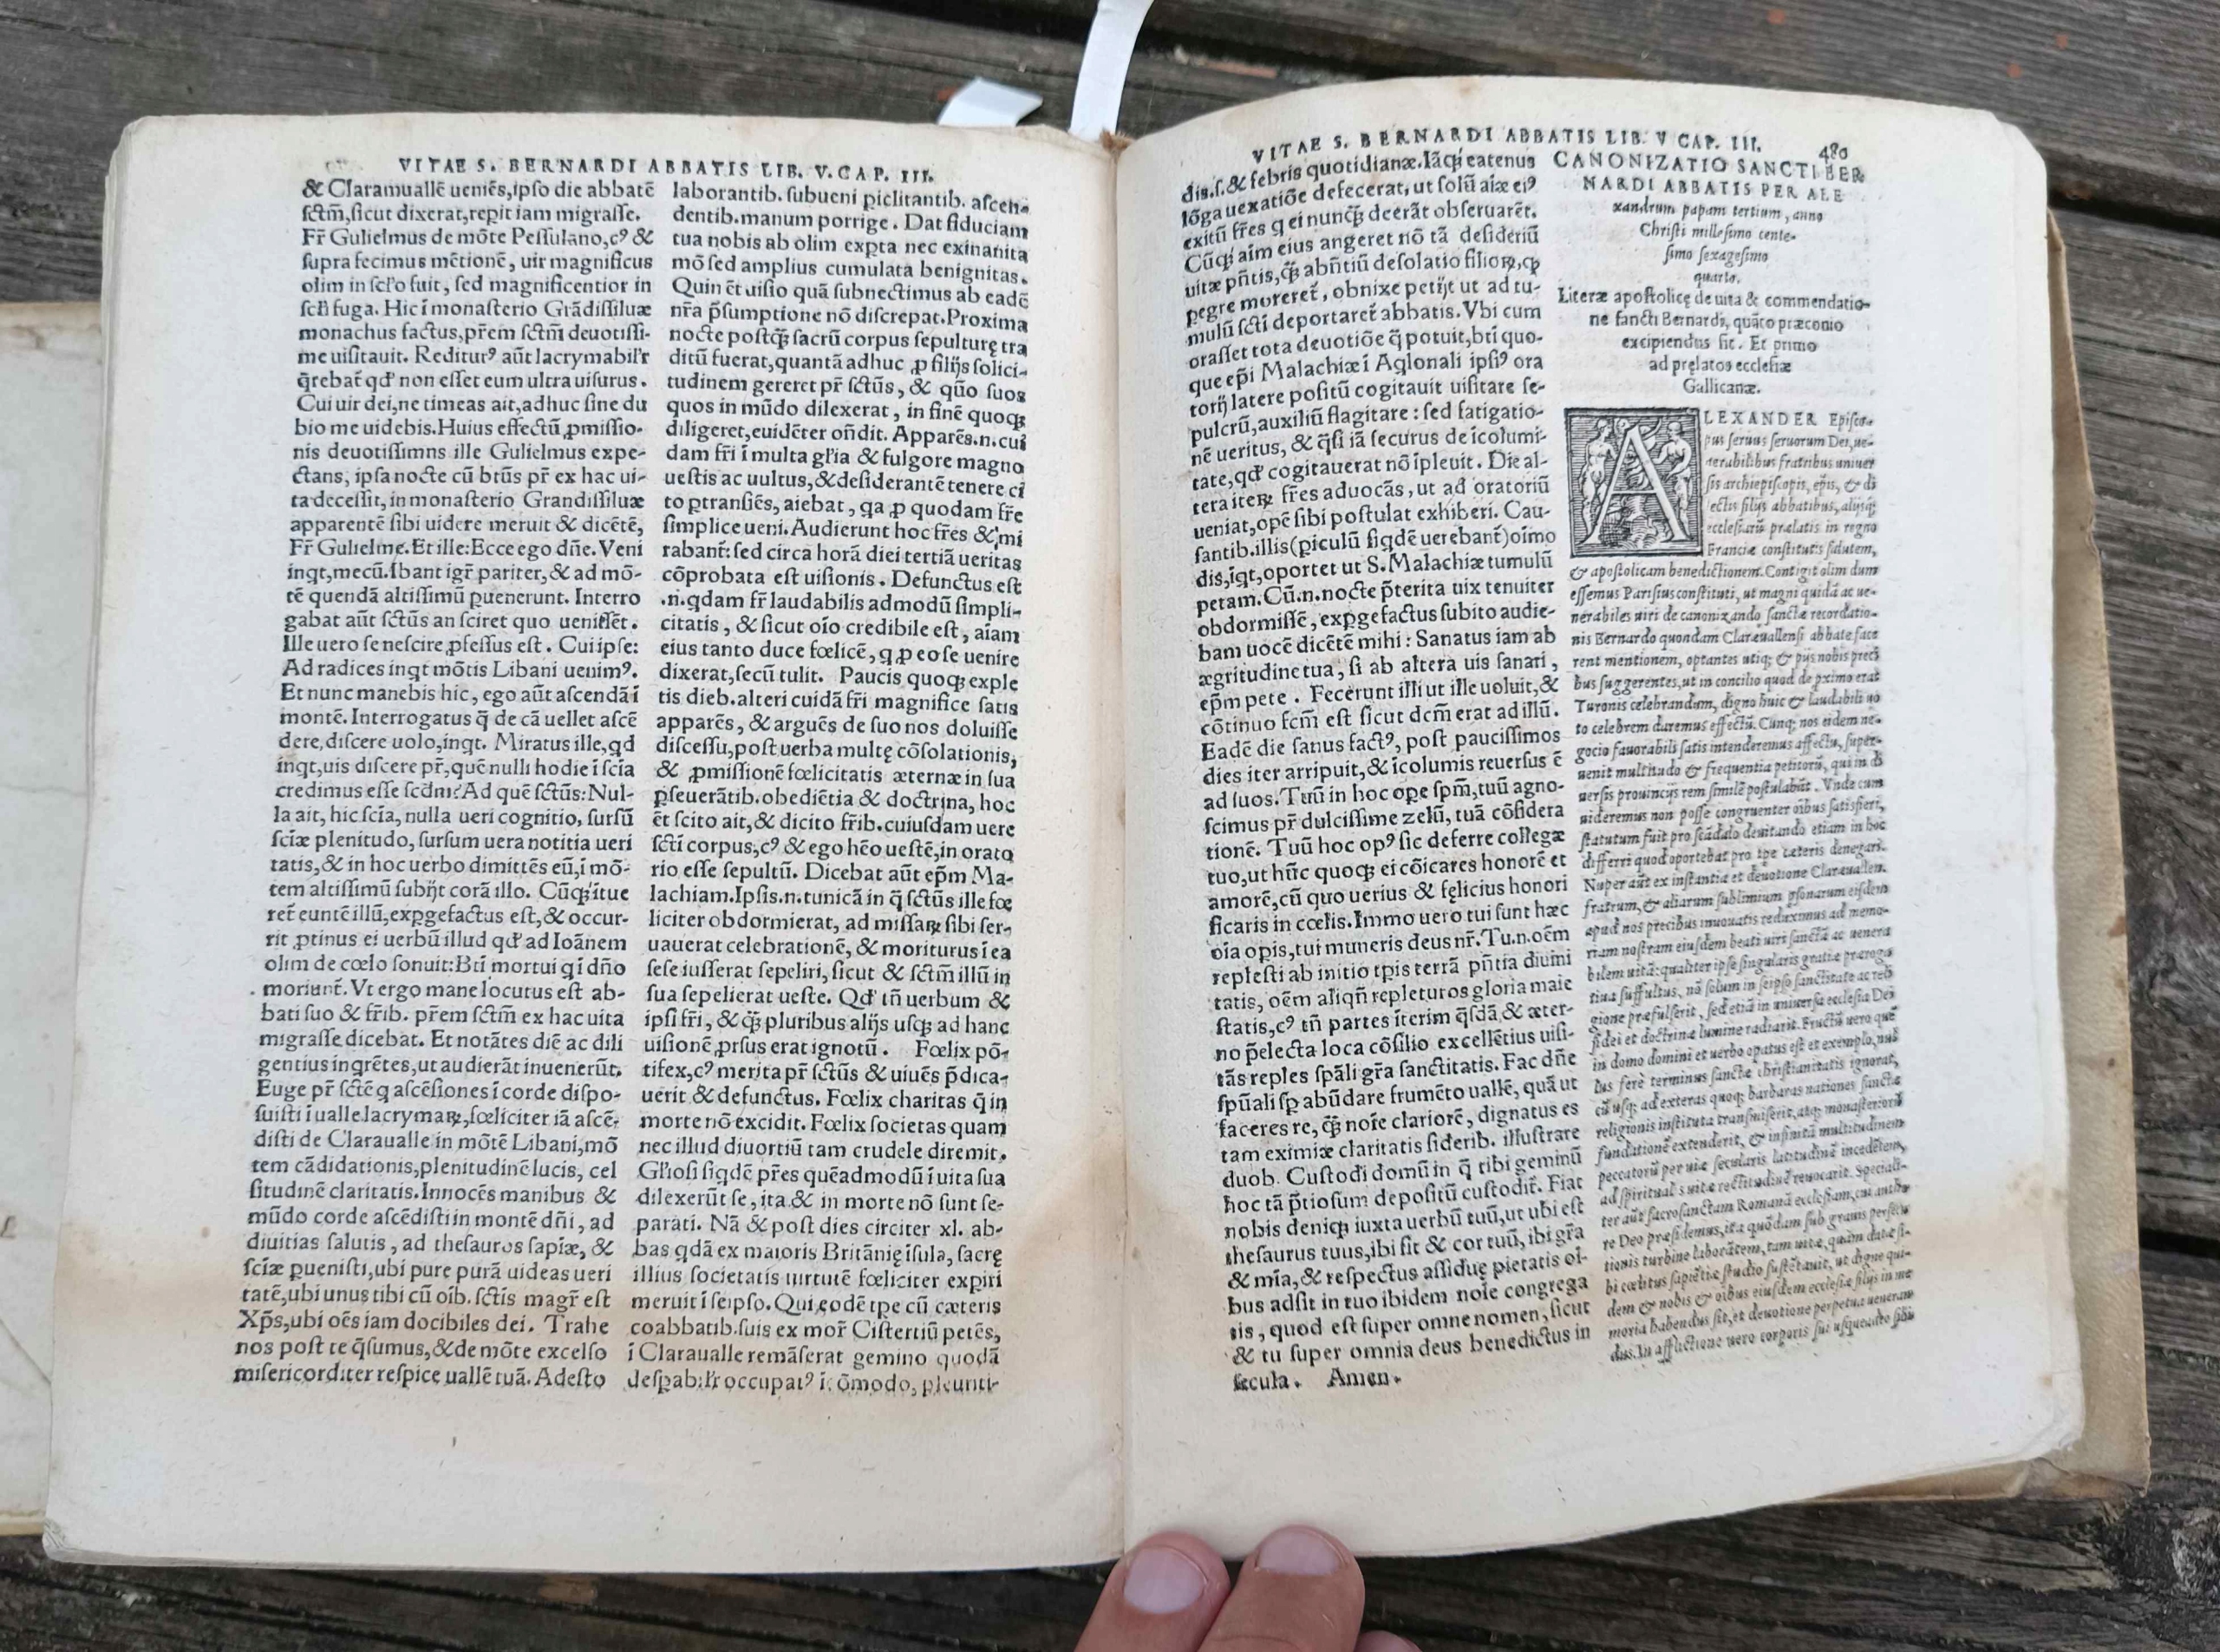 VITAE S. BERNARDI ABBATIS LIB. V. CAP. III.
& Claramuallē ueniēs, ipso die abbatē
sctm̄, sicut dixerat, repit iam migrasse.
Fr̄ Gulielmus de mōte Pessulano, cꝰ &
supra fecimus mētionē, uir magnificus
olim in scl'o fuit, sed magnificentior in
Hic ī monasterio Grādissiluæ
monachus factus, pr̄em sctm̄ deuotissi-
me uisitauit. Rediturꝰ aūt lacrymabil'r
q̄rebat̄ qd' non esset eum ultra uisurus.
Cui uir dei, ne timeas ait, adhuc sine du
bio me uidebis. Huius effectū ꝓmissio-
nis deuotissimns ille Gulielmus expe-
ctans, ipsa nocte cū btūs pr̄ ex hac ui-
ta decessit, in monasterio Grandissiluæ
apparentē sibi uidere meruit & dicētē,
Fr̄ Gulielme. Et ille: Ecce ego dn̄e. Veni
inqt, mecū. Ibant igr̄ pariter, & ad mō-
tē quendā altissimū ꝑuenerunt. Interro
gabat aūt sctūs an sciret quo uenissēt.
Ille uero se nescire ꝓfessus est. Cui ipse:
Ad radices inqt mōtis Libani uenimꝰ.
Et nunc manebis hic, ego aūt ascendā ī
montē. Interrogatus q̄ de cā uellet ascē
dere, discere uolo, inqt. Miratus ille, qd
inqt, uis discere pr̄, quē nulli hodie ī scīa
credimus esse Ad quē sctūs: Nul-
la ait, hic scīa, nulla ueri cognitio, sursū
sciæ plenitudo, sursum uera notitia ueri
tatis, & in hoc uerbo dimittēs eū, ī mō-
tem altissimū subijt corā illo. Cūqꝫ ītue
ret̄ euntē illū, expgefactus est, & occur-
rit ꝓtinus ei uerbū illud qd' ad Ioānem
olim de cœlo sonuit: Bti mortui q ī dn̄o
moriunt̄. Vt ergo mane locutus est ab-
bati suo & fr̄ib. pr̄em sctm̄ ex hac uita
migrasse dicebat. Et notātes diē ac dili
gentius inqrētes, ut audierāt inuenerūt.
Euge pr̄ sctē q ascēsiones ī corde dispo-
suisti ī ualle lacrymaꝝ, fœliciter iā ascē-
disti de Claraualle in mōtē Libani, mō
tem cādidationis, plenitudinē lucis, cel
situdinē claritatis. Innocēs manibus &
mūdo corde ascēdisti in montē dn̄i, ad
diuitias salutis, ad thesauros sapiæ, &
sciæ ꝑuenisti, ubi pure purā uideas ueri
tatē, ubi unus tibi cū oīb. sctis magr̄ est
Xp̄s, ubi oēs iam docibiles dei. Trahe
nos post te q̄sumus, & de mōte excelso
misericorditer respice uallē tuā. Adesto
laborantib. subueni piclitantib. ascen-
dentib. manum porrige. Dat fiduciam
tua nobis ab olim expta nec exinanita
mō sed amplius cumulata benignitas.
Quin ēt uisio quā subnectimus ab eadē
nr̄a p̄sumptione nō discrepat. Proxima
nocte postqꝫ sacrū corpus sepulturę tra
ditū fuerat, quantā adhuc ꝓ filijs solici-
tudinem gereret pr̄ sctūs, & quo suos
quos in mūdo dilexerat, in finē quoqꝫ
diligeret, euidēter on̄dit. Apparēs .n. cui
dam fr̄i ī multa gl'ia & fulgore magno
uestis ac uultus, & desiderantē tenere ci
to ptransiēs, aiebat, qa ꝓ quodam fr̄e
simplice ueni. Audierunt hoc fr̄es & mi
rabant̄: sed circa horā diei tertiā ueritas
cōprobata est uisionis. Defunctus est
.n. qdam fr̄ laudabilis admodū simpli-
citatis, & sicut oīo credibile est, aīam
eius tanto duce fœlicē, q ꝓ eo se uenire
dixerat, secū tulit. Paucis quoqꝫ exple
tis dieb. alteri cuidā fr̄i magnifice satis
apparēs, & arguēs de suo nos doluisse
discessu, post uerba multę cōsolationis,
& ꝓmissionē fœlicitatis æternæ in sua
pseuerātib. obediētia & doctrina, hoc
ēt scito ait, & dicito fr̄ib. cuiusdam uere
scti corpus, cꝰ & ego hēo uestē, in orato
rio esse sepultū. Dicebat aūt ep̄m Ma-
lachiam. Ipsis .n. tunicā in q̄ sctūs ille fœ
liciter obdormierat, ad missaꝝ sibi ser-
uauerat celebrationē, & moriturus ī ea
sese iusserat sepeliri, sicut & sctm̄ illū in
sua sepelierat ueste. Qd' tn̄ uerbum &
ipsi fr̄i, & qꝫ pluribus alijs usqꝫ ad hanc
uisionē ꝓrsus erat ignotū. Fœlix pō-
tifex, cꝰ merita pr̄ sctūs & uiuēs p̄dica-
uerit & defunctus. Fœlix charitas q̄ in
morte nō excidit. Fœlix societas quam
nec illud diuortiū tam crudele diremit.
Gl'iosi siqdē pr̄es quēadmodū ī uita sua
dilexerūt se, ita & in morte nō sunt se-
parati. Nā & post dies circiter xl. ab-
bas qdā ex maioris Britānię īsula, sacrę
illius societatis uirtutē fœliciter expiri
meruit ī seipso. Qui eodē tpe cū cæteris
coabbatib. suis ex mor̄ Cistertiū petēs,
ī Claraualle remāserat gemino quodā
occupatꝰ
VITAE S. BERNARDI ABBATIS LIB. V CAP. III. 480
dis .s. & febris quotidianæ. Iāqꝫ eatenus
lōga uexatiōe defecerat, ut solū aīæ eiꝰ
exitū fr̄es q ei nunqꝫ deerāt obseruarēt.
Cūqꝫ aīm eius angeret nō tā desideriū
uitæ pn̄tis, qꝫ abn̄tiū desolatio filioꝝ,
pegre moreret̄, obnixe petijt ut ad tu-
mulū scti deportaret̄ abbatis. Vbi cum
orasset tota deuotiōe q̄ potuit, bti quo-
que ep̄i Malachiæ ī Aglonali ipsiꝰ ora
torij latere positū cogitauit uisitare se-
pulcrū, auxiliū flagitare: sed fatigatio-
nē ueritus, & q̄si iā securus de īcolumi-
tate, qd' cogitauerat nō īpleuit. Die al-
tera iteꝝ fr̄es aduocās, ut ad oratoriū
ueniat, opē sibi postulat exhiberi. Cau-
santib. illis (piculū siqdē uerebant̄) oīmo
dis, īqt, oportet ut S. Malachiæ tumulū
petam. Cū .n. nocte p̄terita uix tenuiter
obdormissē, expgefactus subito audie-
bam uocē dicētē mihi: Sanatus iam ab
ægritudine tua, si ab altera uis sanari,
ep̄m pete. Fecerunt illi ut ille uoluit, &
cōtinuo fcm̄ est sicut dcm̄ erat ad illū.
Eadē die sanus factꝰ, post paucissimos
dies iter arripuit, & īcolumis reuersus ē
ad suos. Tuū in hoc ope spm̄, tuū agno-
scimus pr̄ dulcissime zelū, tuā cōsidera
tionē. Tuū hoc opꝰ sic deferre collegæ
tuo, ut hūc quoqꝫ ei cōicares honorē et
amorē, cū quo uerius & fęlicius honori
ficaris in cœlis. Immo uero tui sunt hæc
oīa opis, tui muneris deus nr̄. Tu .n. oēm
replesti ab initio tpis terrā pn̄tia diuini
tatis, oēm aliqn̄ repleturos gloria maie
statis, cꝰ tn̄ partes īterim q̄sdā & æter-
no p̄electa loca cōsilio excellētius uisi-
tās reples spāli gr̄a sanctitatis. Fac dn̄e
spūali abūdare frumēto uallē, quā ut
faceres re, qꝫ noīe clariorē, dignatus es
tam eximiæ claritatis siderib. illustrare
duob. Custodi domū in q̄ tibi geminū
hoc tā p̄tiosum depositū custodit̄. Fiat
nobis deniqꝫ iuxta uerbū tuū, ut ubi est
thesaurus tuus, ibi sit & cor tuū, ibi gr̄a
& mīa, & respectus assiduę pietatis oī-
bus adsit in tuo ibidem noīe congrega
tis, quod est super omne nomen, sicut
& tu super omnia deus benedictus in
secula. Amen.
CANONIZATIO SANCTI BER
NARDI ABBATIS PER ALE
xandrum papam tertium, anno
Christi millesimo cente-
simo sexagesimo
quarto.
Literæ apostolicę de uita & commendatio-
ne sancti Bernardi, quāto præconio
excipiendus sit. Et primo
ad pręlatos ecclesiæ
Gallicanæ.
ALEXANDER Episco-
pus seruus seruorum Dei, ue-
nerabilibus fratribus uniuer
sis archiepiscopis, ep̄is, & di
lectis filijs abbatibus, alijsqꝫ
ecclesiarū prælatis in regno
Franciæ constitutis salutem,
& apostolicam benedictionem. Contigit olim dum
essemus Parisius constituti, ut magni quidā ac ue-
nerabiles uiri de canonizando sanctæ recordatio-
nis Bernardo quondam Clareuallensi abbate face
rent mentionem, optantes utiqꝫ & pijs nobis preci
bus suggerentes, ut in concilio quod de pximo erat
Turonis celebrandum, digno huic & laudabili uo
to celebrem daremus effectū. Cunqꝫ nos eidem ne-
gocio fauorabili satis intenderemus affectu, super-
uenit multitudo & frequentia petitorū, qui in di
uersis prouincijs rem similē postulabāt. Vnde cum
uideremus non posse congruenter oībus satisfieri,
statutum fuit pro scādalo deuitando etiam in hoc
differri quod oportebat pro tpe cæteris denegari.
Nuper aūt ex instantia et deuotione Clareuallen.
fratrum, & aliarum sublimium psonarum eisdem
apud nos precibus innouatis reduximus ad memo-
riam nostram eiusdem beati uiri sanctā ac uenera
bilem uitā: qualiter ipse singularis gratiæ præroga
tiua suffultus, nō solum in seipso sanctitate ac reli
gione præfulserit, sed etiā in uniuersa ecclesia Dei
fidei et doctrinæ lumine radiarit. Fructū uero quē
in domo domini et uerbo opatus est et exemplo, nul
lus ferè terminus sanctæ christianitatis ignorat,
cū usqꝫ ad exteras quoqꝫ barbaras nationes sanctæ
religionis instituta transmiserit, atqꝫ monasteriorū
fundationē extenderit, & infinitā multitudinem
peccatorū per uiæ secularis latitudinē incedētem,
ad spiritualis uitæ rectitudinē reuocarit. Speciali-
ter aūt sacrosanctam Romanā ecclesiam, cui autho
re Deo præsidemus, ita quōdam sub grauis persecu
tionis turbine laborātem, tam uitæ, quàm datæ si-
bi cœlitus sapiētiæ studio sustētauit, ut digne qui-
dem & nobis & oībus eiusdem ecclesiæ filijs in me
moria habendus sit, et deuotione perpetua ueneran
dus. In afflictione uero corporis sui usqueadeo sibi